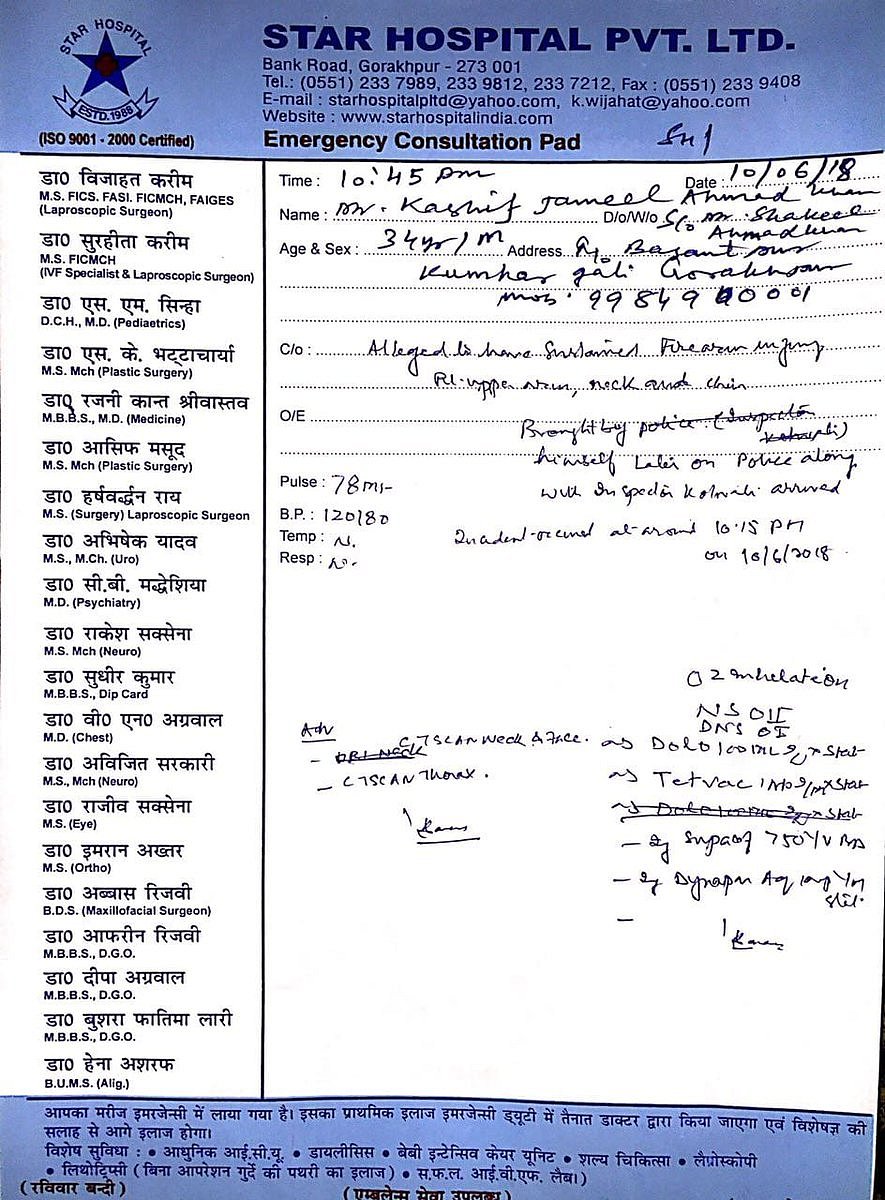 STAR HOSPITAL
ESTD. 1988
(ISO 9001 - 2000 Certified)
STAR HOSPITAL PVT. LTD.
Bank Road, Gorakhpur - 273 001
Tel.: (0551) 233 7989, 233 9812, 233 7212, Fax : (0551) 233 9408
E-mail : starhospitalpltd@yahoo.com, k.wijahat@yahoo.com
Website : www.starhospitalindia.com
Emergency Consultation Pad
डा0 विजाहत करीम
M.S. FICS. FASI. FICMCH, FAIGES
(Laproscopic Surgeon)
डा0 सुरहीता करीम
M.S. FICMCH
(IVF Specialist & Laproscopic Surgeon)
डा0 एस. एम. सिन्हा
D.C.H., M.D. (Pediaetrics)
डा0 एस. के. भट्टाचार्या
M.S. Mch (Plastic Surgery)
डा0 रजनी कान्त श्रीवास्तव
M.B.B.S., M.D. (Medicine)
डा0 आसिफ मसूद
M.S. Mch (Plastic Surgery)
डा0 हर्षवर्द्धन राय
M.S. (Surgery) Laproscopic Surgeon
डा0 अभिषेक यादव
M.S., M.Ch. (Uro)
डा0 सी.बी. मद्धेशिया
M.D. (Psychiatry)
डा0 राकेश सक्सेना
M.S. Mch (Neuro)
डा0 सुधीर कुमार
M.B.B.S., Dip Card
डा0 वी0 एन0 अग्रवाल
M.D. (Chest)
डा0 अविजित सरकारी
M.S., Mch (Neuro)
डा0 राजीव सक्सेना
M.S. (Eye)
डा0 इमरान अख्तर
M.S. (Ortho)
डा0 अब्बास रिजवी
B.D.S. (Maxillofacial Surgeon)
डा0 आफरीन रिजवी
M.B.B.S., D.G.O.
डा0 दीपा अग्रवाल
M.B.B.S., D.G.O.
डा0 बुशरा फातिमा लारी
M.B.B.S., D.G.O.
डा0 हेना अशरफ
B.U.M.S. (Alig.)
Time : 10:45 pm Date : 10/06/18
Name : Mr. Kashif Jameel Ahmad Khan D/o/W/o S/o Mr. Shakeel
Ahmad Khan
Age & Sex : 34yr/M Address R/o Basantpur
Kumhar gali Gorakhpur
Mob.
C/o : Alleged to have Sustained Firearm injury
Rt. upper arm, neck and chin
O/E Brought by police (Inspector
Kotwali)
himself Later on Police along
with Inspector Kotwali arrived
Pulse : 78
B.P. : 120/80
Temp : N.
Resp : N.
Incident occured at around 10:15 PM
on 10/6/2018.
O2 inhalation
NS
DNS
Adv
CT SCAN Neck & Face.
- CT SCAN Thorax.
Dolo 100ML x Stat
Tetvac x Stat
Dolo x Stat
- Supacef 750
- Dynapar Aq
आपका मरीज इमरजेन्सी में लाया गया है। इसका प्राथमिक इलाज इमरजेन्सी ड्यूटी में तैनात डाक्टर द्वारा किया जाएगा एवं विशेषज्ञ की
सलाह से आगे इलाज होगा।
विशेष सुविधा : • आधुनिक आई.सी.यू. • डायलीसिस • बेबी इन्टेन्सिव केयर यूनिट • शल्य चिकित्सा • लैप्रोस्कोपी
• लिथोट्रिप्सी ( बिना आपरेशन गुर्दे की पथरी का इलाज ) • स.फ.ल. आई.वी.एफ. लैब।
(रविवार बन्दी) (एम्बुलेन्स सेवा उपलब्ध)